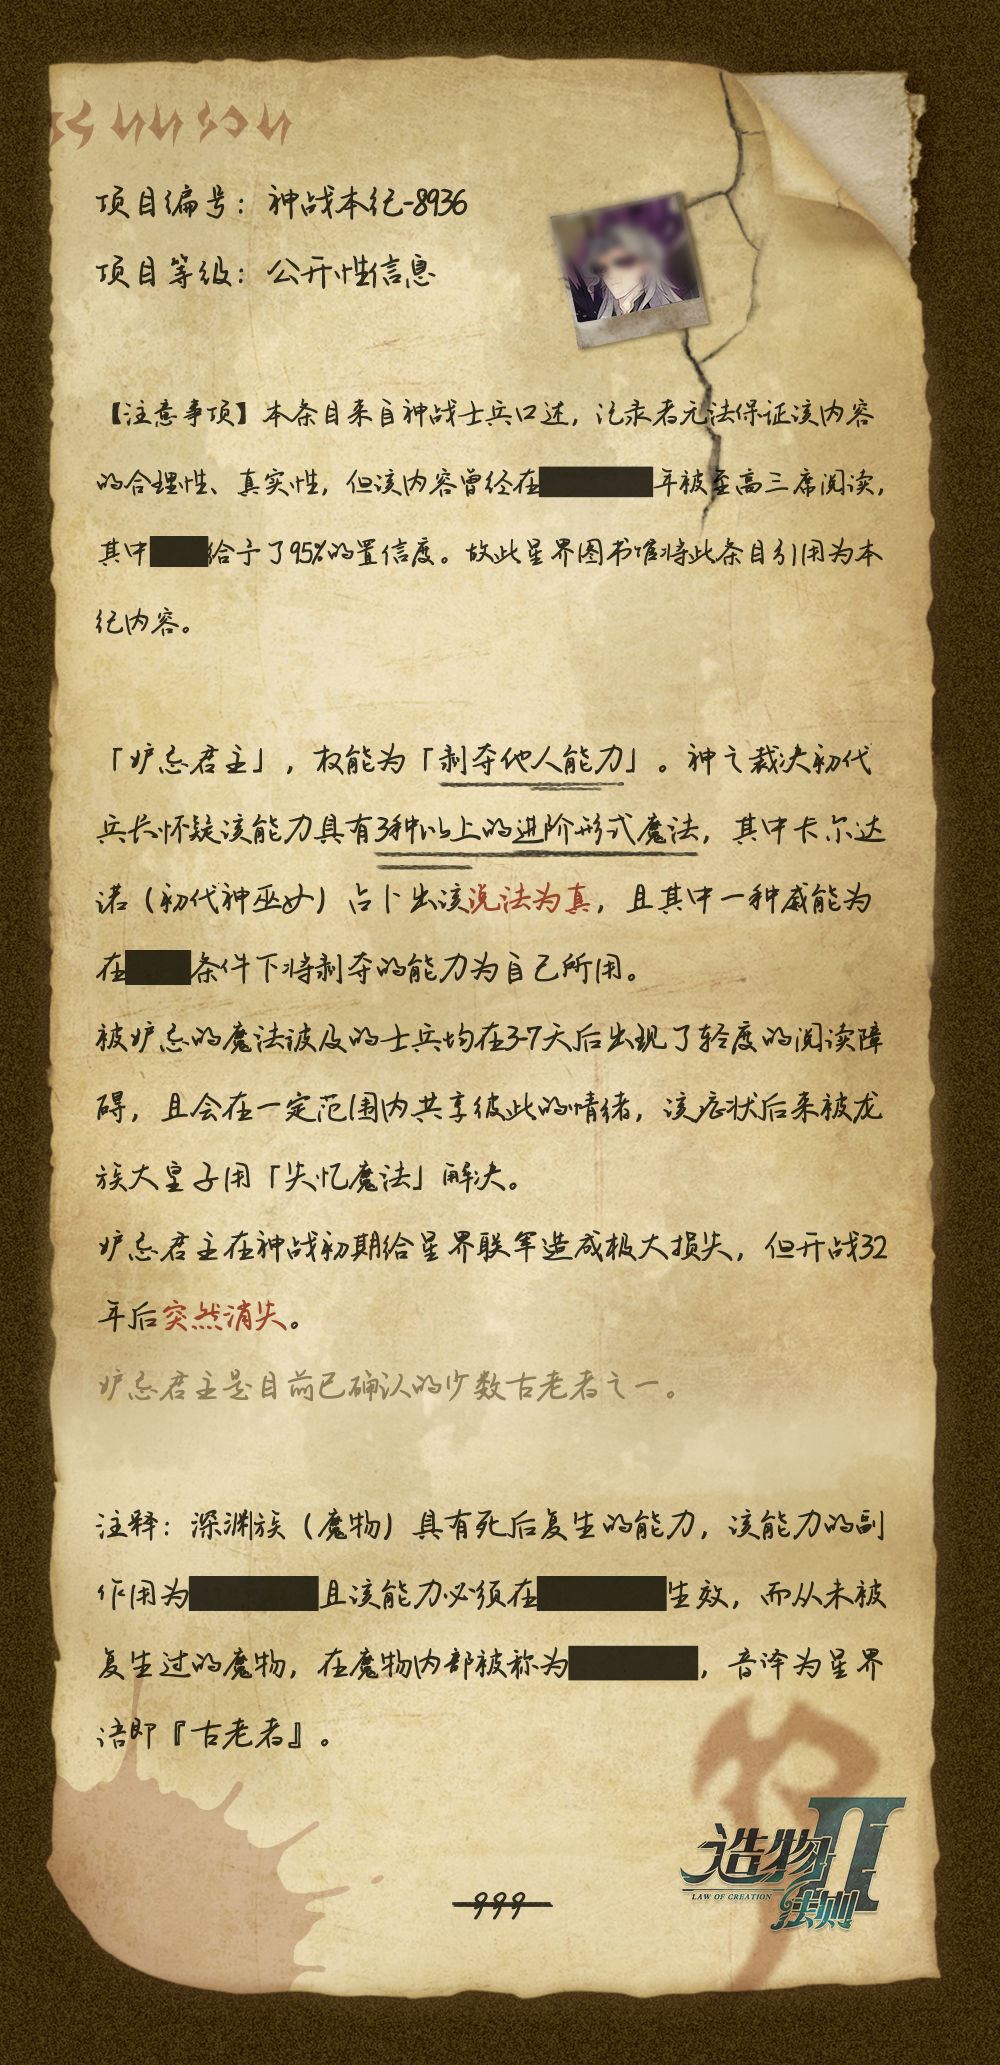 项目编号：神战本纪-8936
项目等级：公开性信息
【注意事项】本条目来自神战士兵口述，记录者无法保证该内容
的合理性、真实性，但该内容曾经在 年被至高三席阅读，
其中 给予了95%的置信度。故此星界图书馆将此条目引用为本
纪内容。
「妒忌君主」，权能为「剥夺他人能力」。神之裁决初代
兵长怀疑该能力具有3种以上的进阶形式魔法，其中卡尔达
诺（初代神巫女）占卜出该说法为真，且其中一种威能为
在 条件下将剥夺的能力为自己所用。
被妒忌的魔法波及的士兵均在3-7天后出现了轻度的阅读障
碍，且会在一定范围内共享彼此的情绪，该症状后来被龙
族大皇子用「失忆魔法」解决。
妒忌君主在神战初期给星界联军造成极大损失，但开战32
年后突然消失。
妒忌君主是目前已确认的少数古老者之一。
注释：深渊族（魔物）具有死后复生的能力，该能力的副
作用为 且该能力必须在 生效，而从未被
复生过的魔物，在魔物内部被称为 ，音译为星界
语即『古老者』。
999
造物法则II
LAW OF CREATION